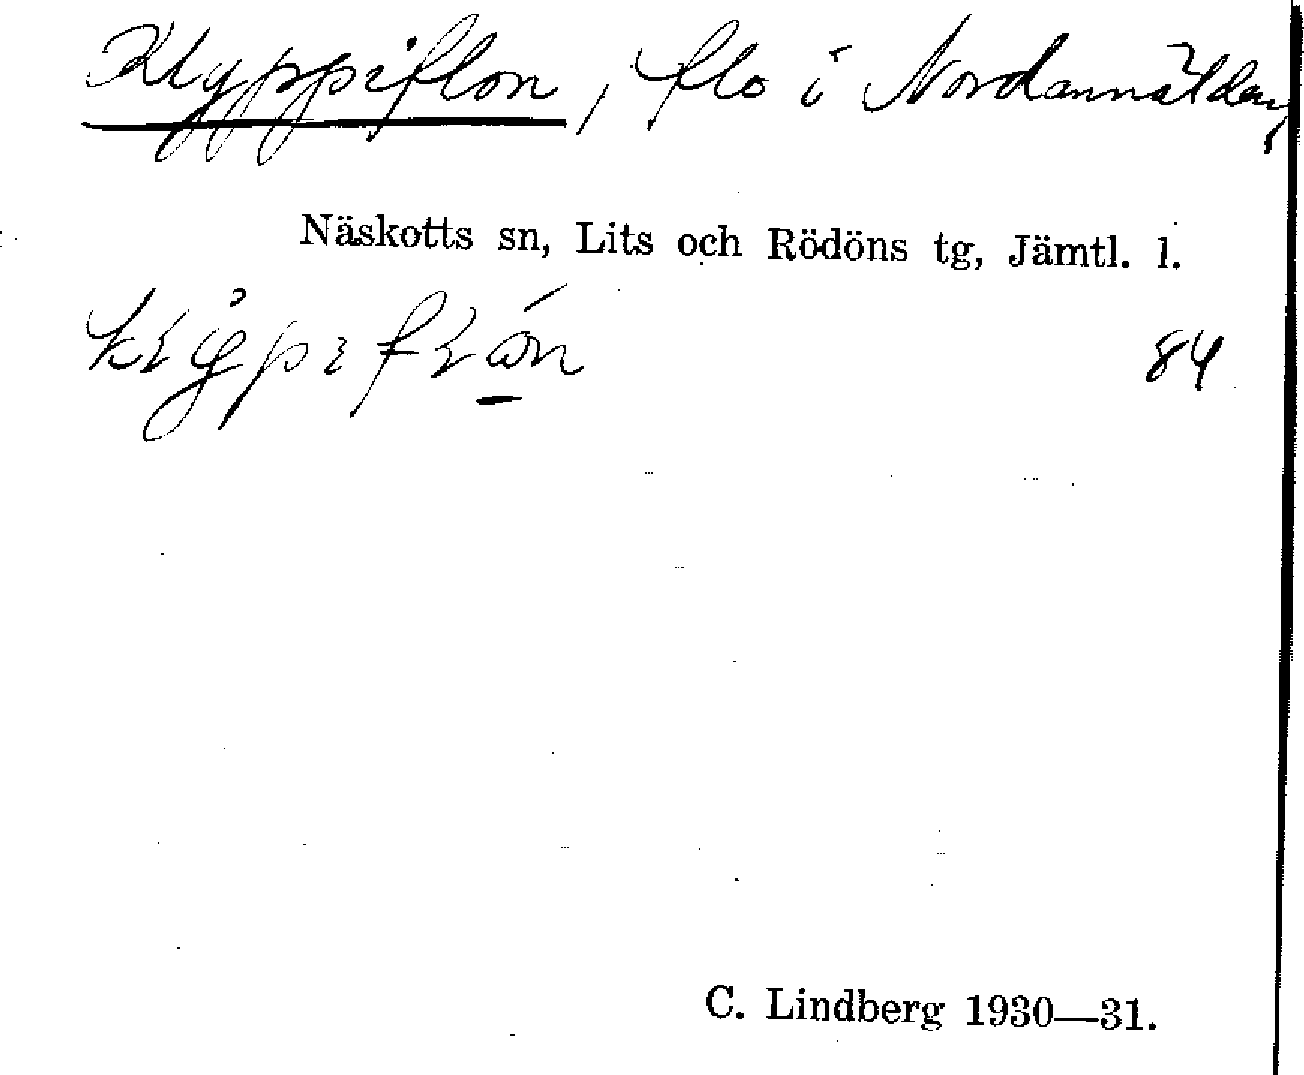 Klyppiflon, flo i Nordannälden,
Näskotts sn, Lits och Rödöns tg, Jämtl. l.
84
C. Lindberg 1930—31.